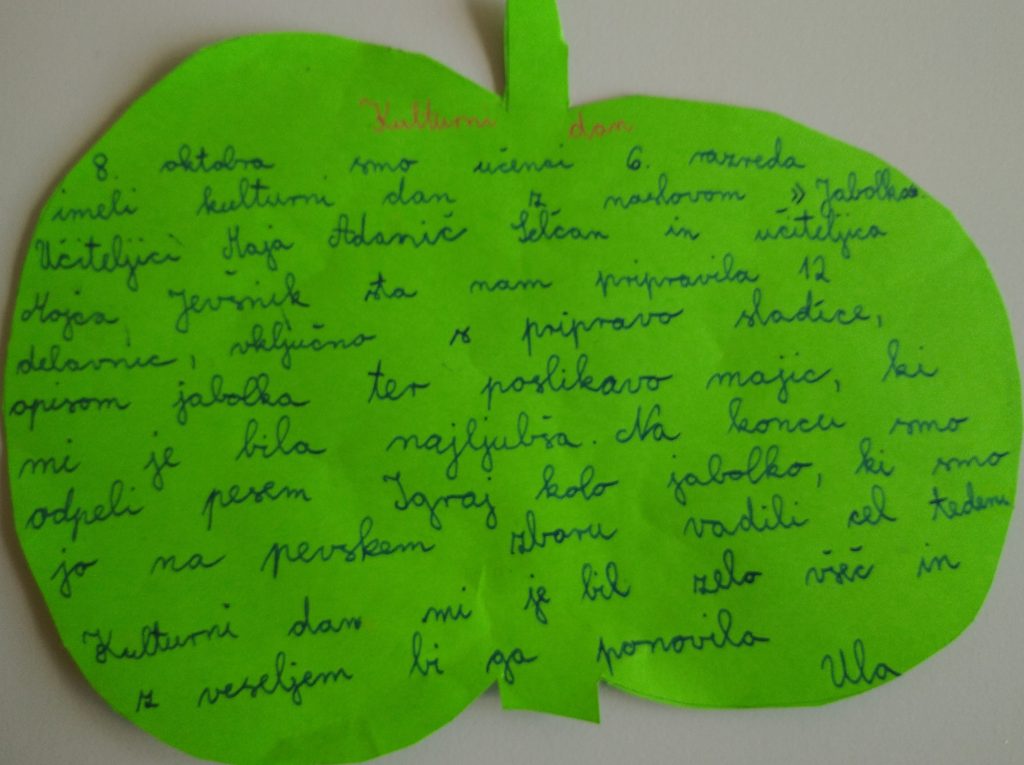 Kulturni dan
8. oktobra smo učenci 6. razreda
imeli kulturni dan z naslovom »Jabolka«.
Učiteljici Maja Adanič Selčan in učiteljica
Mojca Jevšnik sta nam pripravila 12
delavnic, vključno s pripravo sladice,
opisom jabolka ter poslikavo majic, ki
mi je bila najljubša. Na koncu smo
odpeli pesem Igraj kolo jabolko, ki smo
jo na pevskem zboru vadili cel teden.
Kulturni dan mi je bil zelo všeč in
z veseljem bi ga ponovila
Ula